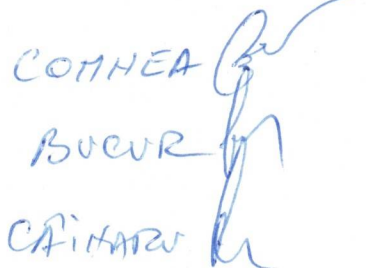 COMNEA
BUCUR
CĂiNARU